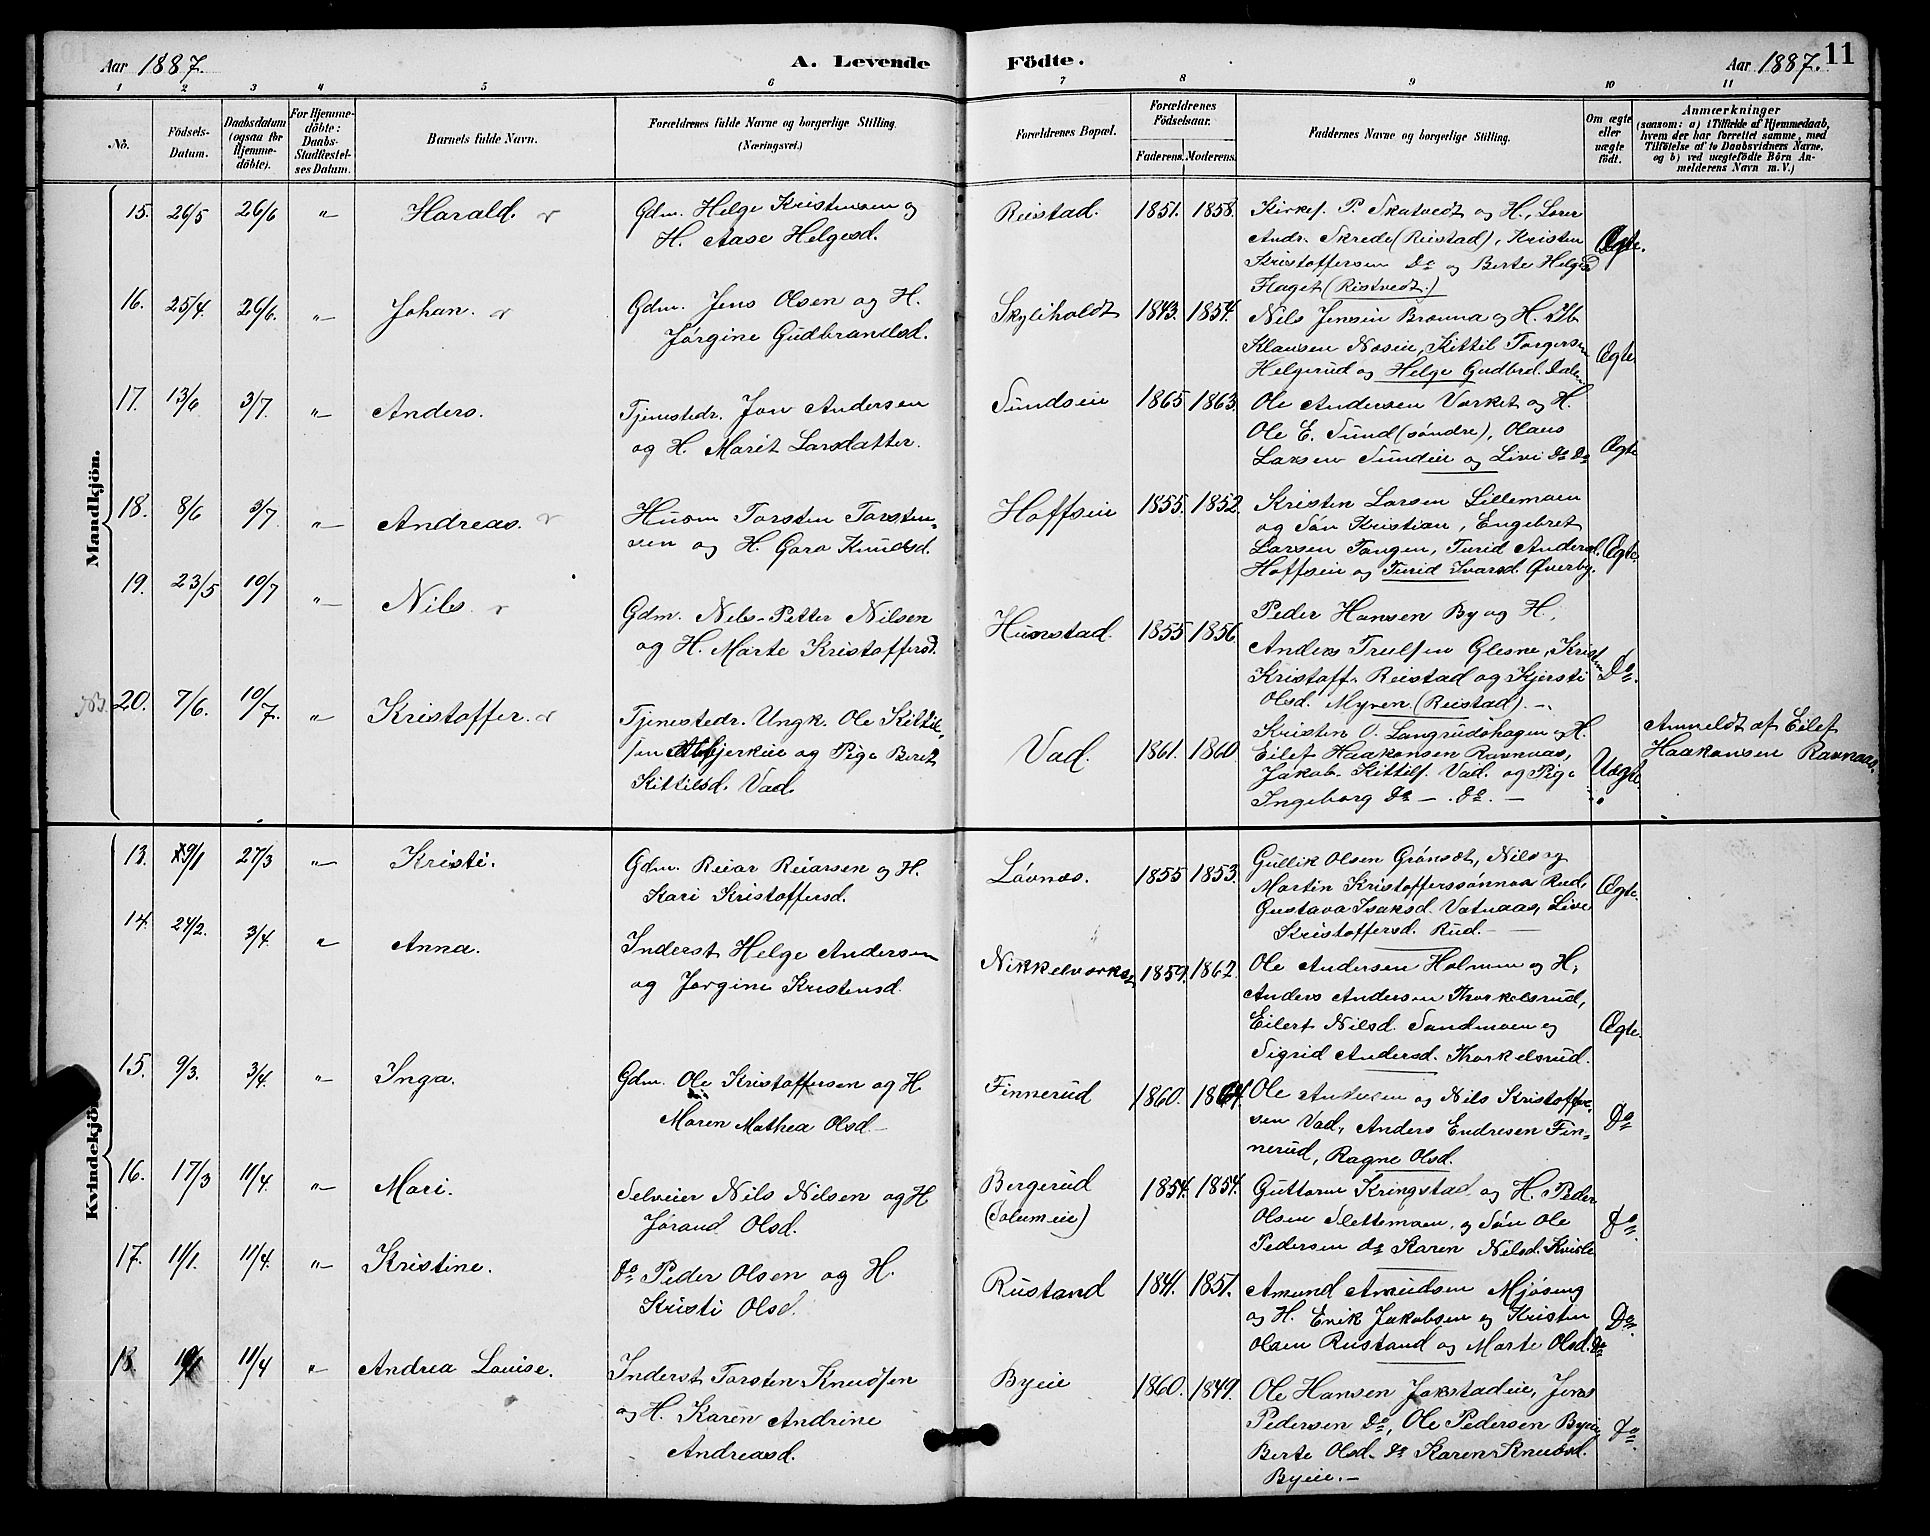 Aar 1887. A. Levende Födte. Aar 1887. 11
1 2 3 4 5 6 7 8 9 10 11
No.
Födsels-Datum.
Daabsdatum (ogsaa för Hjemme-döbte).
For Hjemme-döbte: Daabs-Stadfæstel-ses Datum.
Barnets fulde Navn.
Forældrenes fulde Navne og borgerlige Stilling. (Næringsvei.)
Forældrenes Bopæl.
Forældrenes Födselsaar.
Faderens. Moderens.
Faddernes Navne og borgerlige Stilling.
Om ægte eller uægte født.
Anmærkninger
(saasom: a) i Tilfælde af Hjemmedaab,
hvem der har forrettet samme, med
Tilföielse af to Daabsvidners Navne,
og b) ved uægtefödte Börn An-
melderens Navn m. V.)
Mandkjön.
15. 26/5 26/6 " Harald. Gdm. Helge Kristensen og
H. Aase Helgesd.
Reistad. 1851. 1858. Kirkes. P. Skatvedt og H., Lærer
Andr. Skrede (Reistad), Kristen
Kristoffersen Do og Berte Helgesd
Haget (Ristvedt.)
Ægte.
16. 25/4. 26/6. " Johan. Gdm. Jens Olsen og H.
Jørgine Gudbrandsd.
Skyliholdt 1843. 1854. Nils Jensen Brønna og H. Ilb
Klausen Nøseie, Kittil Torgersen
Helgerud og Helge Gudbrd. Dalen
Ægte
17. 13/6 3/7. " Anders. Tjenestedr. Jon Andersen
og H. Marit Larsdatter.
Sundseie 1865 1863. Ole Andersen Værket og H.
Ole E. Sund (søndre), Olaus
Larsen Sundeie og Live Do Do
Ægte
18. 8/6 3/7. " Andreas. Husm Torsten Torsten-
sen og H. Goro Knudsd.
Hoffseie 1855. 1852. Kristen Larsen Lillemoen
og Søn Kristian, Engebret
Larsen Tangen, Turid Andersd.
Hoffseie og Turid Ivarsd. Øverby.
Ægte.
19. 23/5 10/7 " Nils Gdm. Nils-Petter Nilsen
og H. Marte Kristoffersd.
Hunstad. 1855 1856. Peder Hansen By og H.
Anders Trulsen Glesne, Kristen
Kristoff. Reistad og Kjersti
Olsd. Myren (Reistad).
Do.
NB. 20. 7/6. 10/7. " Kristoffer. Tjenestedr. Ungk. Ole Kittil-
sen Bjerkeie og Pige Berit
Kittilsd. Vad.
Vad. 1861. 1860. Kristen O. Langrudshagen og H.
Eilef Haakonsen Ravnaas,
Jakob Kittils. Vad. og Pige
Ingeborg Do — Do. —
Uægte
Anmeldt af Eilef
Haakonsen Ravnaas.
Kvindekjön.
13. 29/1 27/3 " Kristi. Gdm. Reiar Reiarsen og H.
Kari Kristoffersd.
Løvnæs. 1855 1853. Gullik Olsen Grønsæt, Nils og
Martin Kristofferssønnar Rud,
Gustava Isaksd. Vatnaas, Live
Kristoffersd. Rud.
Ægte.
14. 24/2. 3/4. " Anna. Inderst Helge Andersen
og Jørgine Kristensd.
Nikkelverket 1859. 1862. Ole Andersen Holmen og H,
Anders Andersen Thorkelsrud,
Eilert Nilsd. Sandmoen og
Sigrid Andersd. Thorkelsrud.
Ægte.
15. 9/3. 3/4. " Inga. Gdm. Ole Kristoffersen og H
Maren Mathea Olsd.
Finnerud 1860. 1864. Ole Andersen og Nils Kristoffer-
sen Vad, Anders Endresen Fin-
nerud, Ragne Olsd.
Do
16. 17/3 11/4. " Mari. Selveier Nils Nilsen og H
Jørand Olsd.
Bergerud
(Solumeie)
1854. 1854. Guttorm Kringstad og H. Peder
Olsen Slettemoen, og Søn Ole
Pedersen Do Karen Nilsd. Kvisle
Do.
17. 11/1. 11/4. " Kristine. Do Peder Olsen og H.
Kristi Olsd.
Rustand 1841. 1851. Amund Amudsen Mjøsing
og H. Erik Jakobsen og Kristen
Olsen Rustand og Marte Olsd. Do
Do.
18. 10/1 11/4 " Andrea Louise. Inderst Torsten Knudsen
og H. Karen Andrine
Andreasd.
Byeie 1860. 1849. Ole Hansen Jokstadeie, Jens
Pedersen Do, Ole Pedersen Byeie
Berte Olsd. Do Karen Knudsd.
Byeie.
Do.